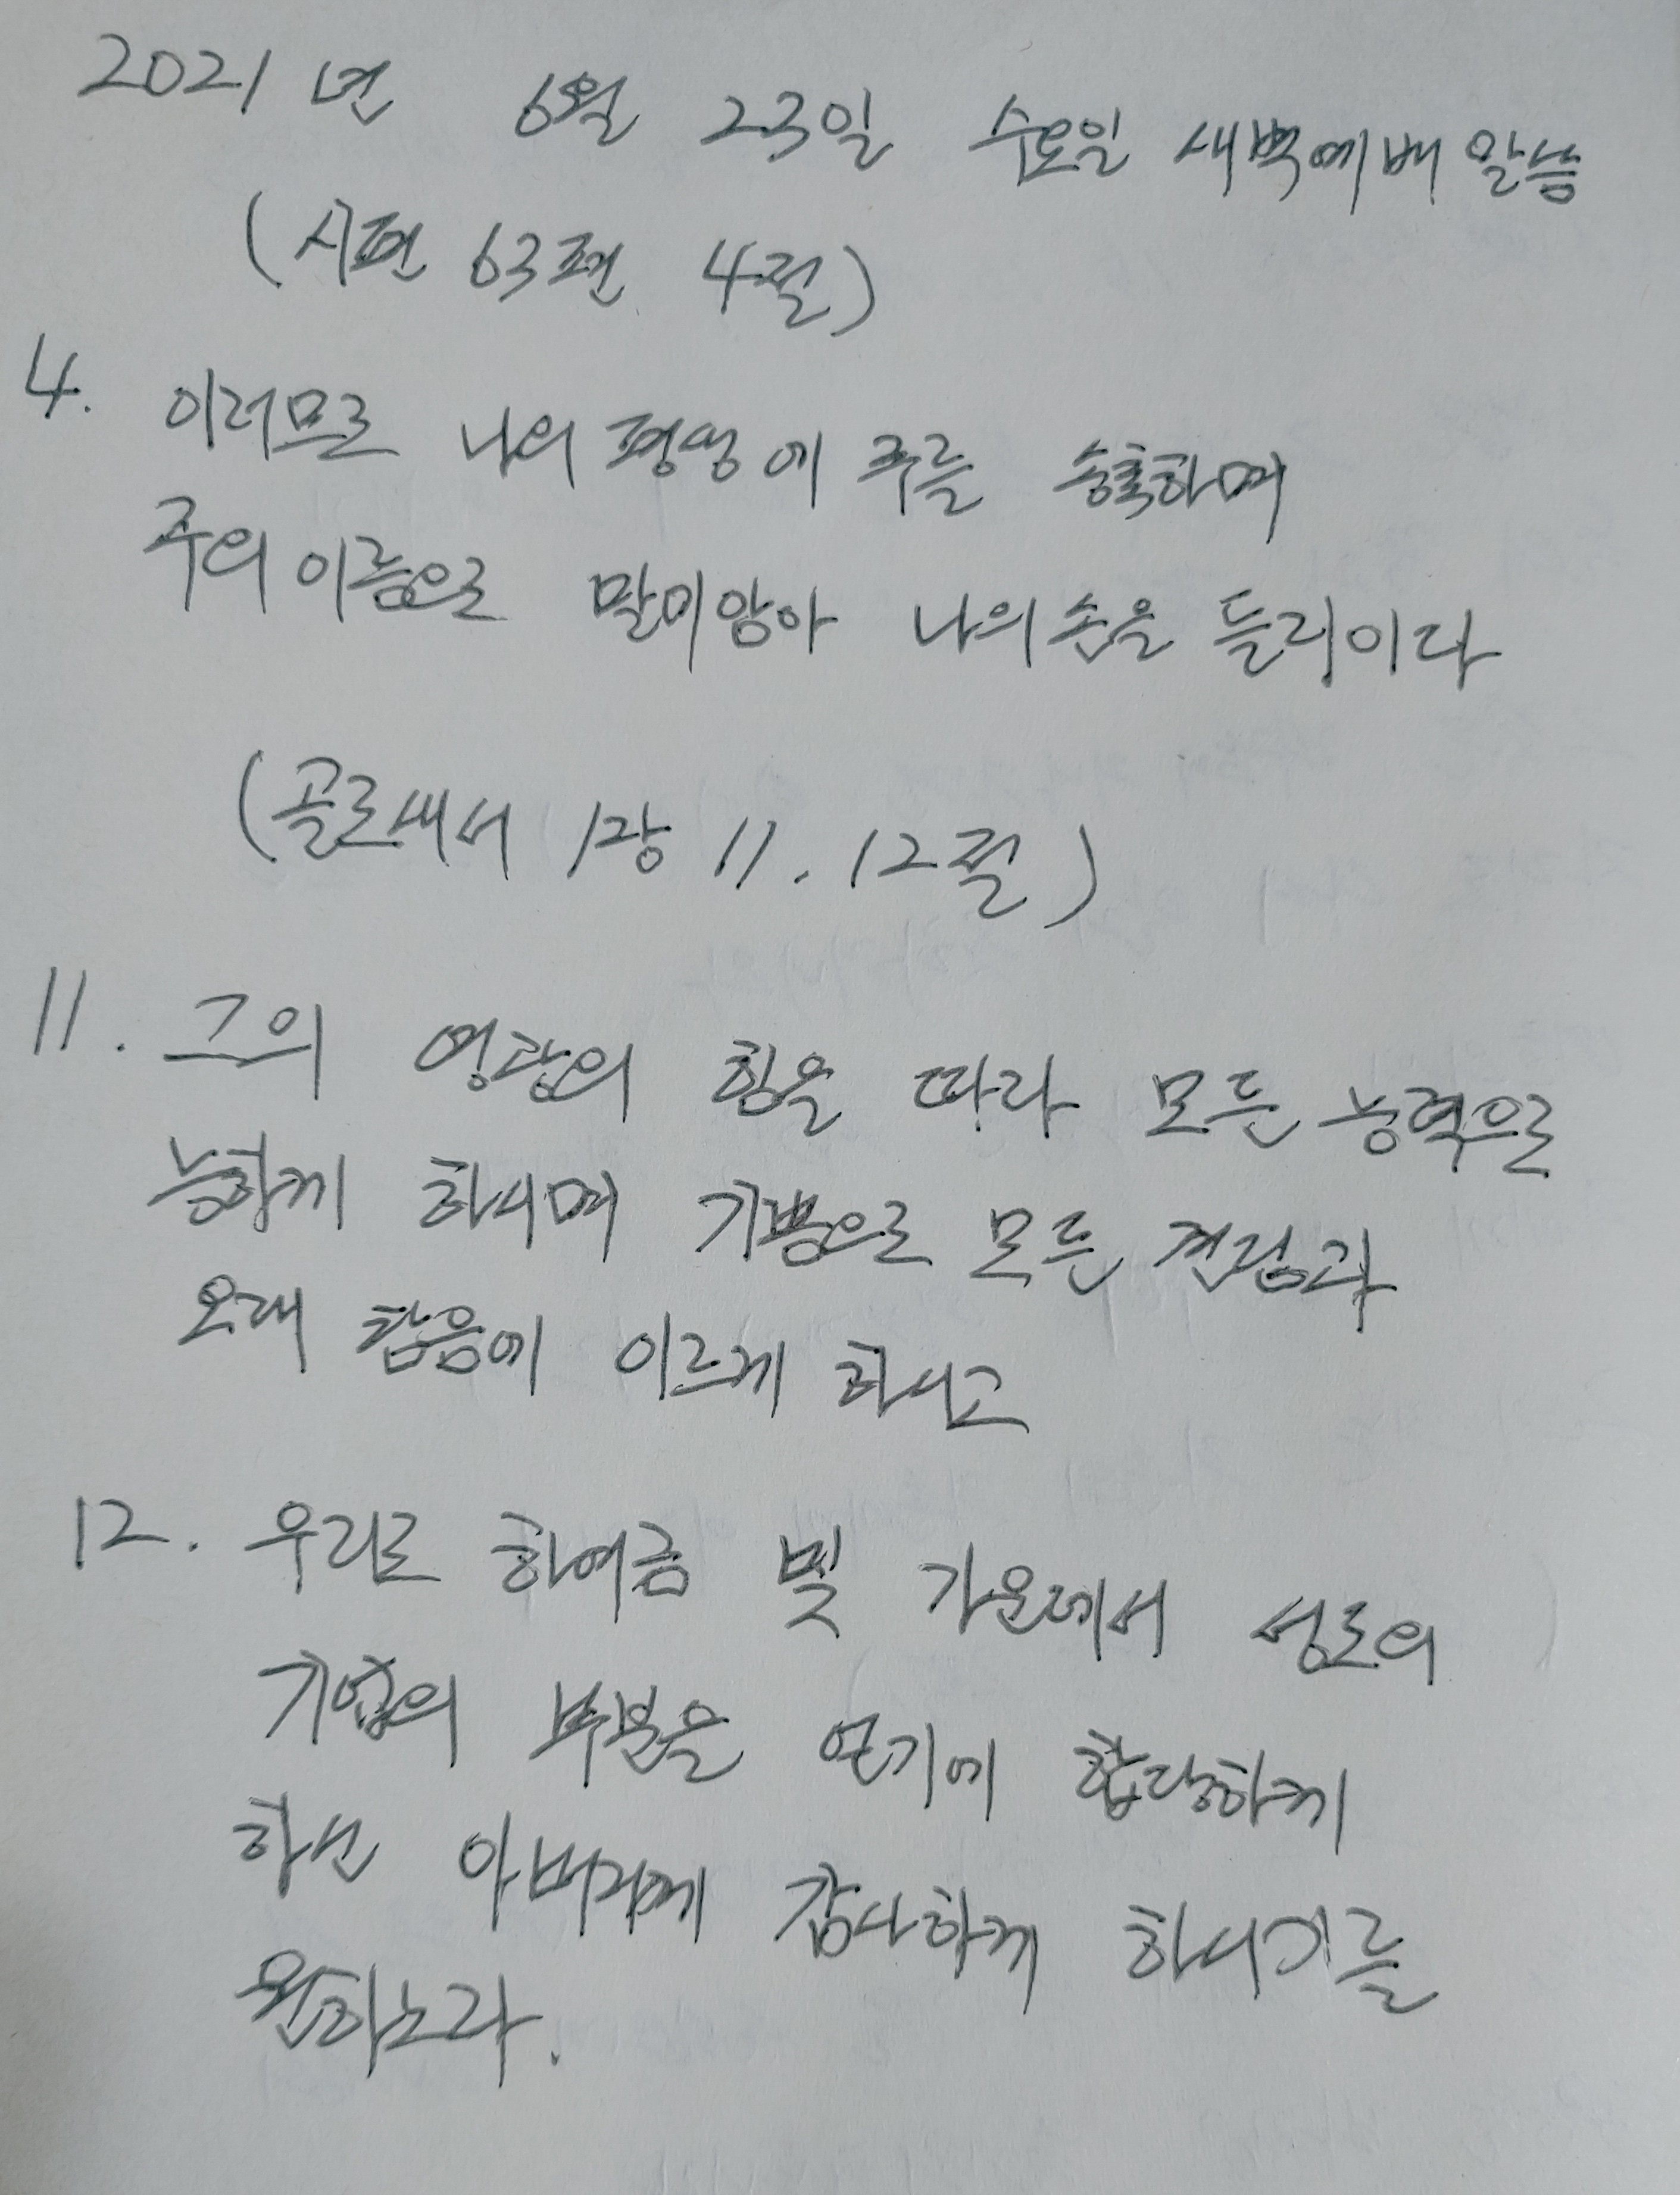 2021년 6월 23일 수요일 새벽예배 말씀
(시편 63편 4절)
4. 이러므로 나의 평생에 주를 송축하며
주의 이름으로 말미암아 나의 손을 들리이다
(골로새서 1장 11. 12절)
11. 그의 영광의 힘을 따라 모든 능력으로
능하게 하시며 기쁨으로 모든 견딤과
오래 참음에 이르게 하시고
12. 우리로 하여금 빛 가운데서 성도의
기업의 부분을 얻기에 합당하게
하신 아버지께 감사하게 하시기를
원하노라.